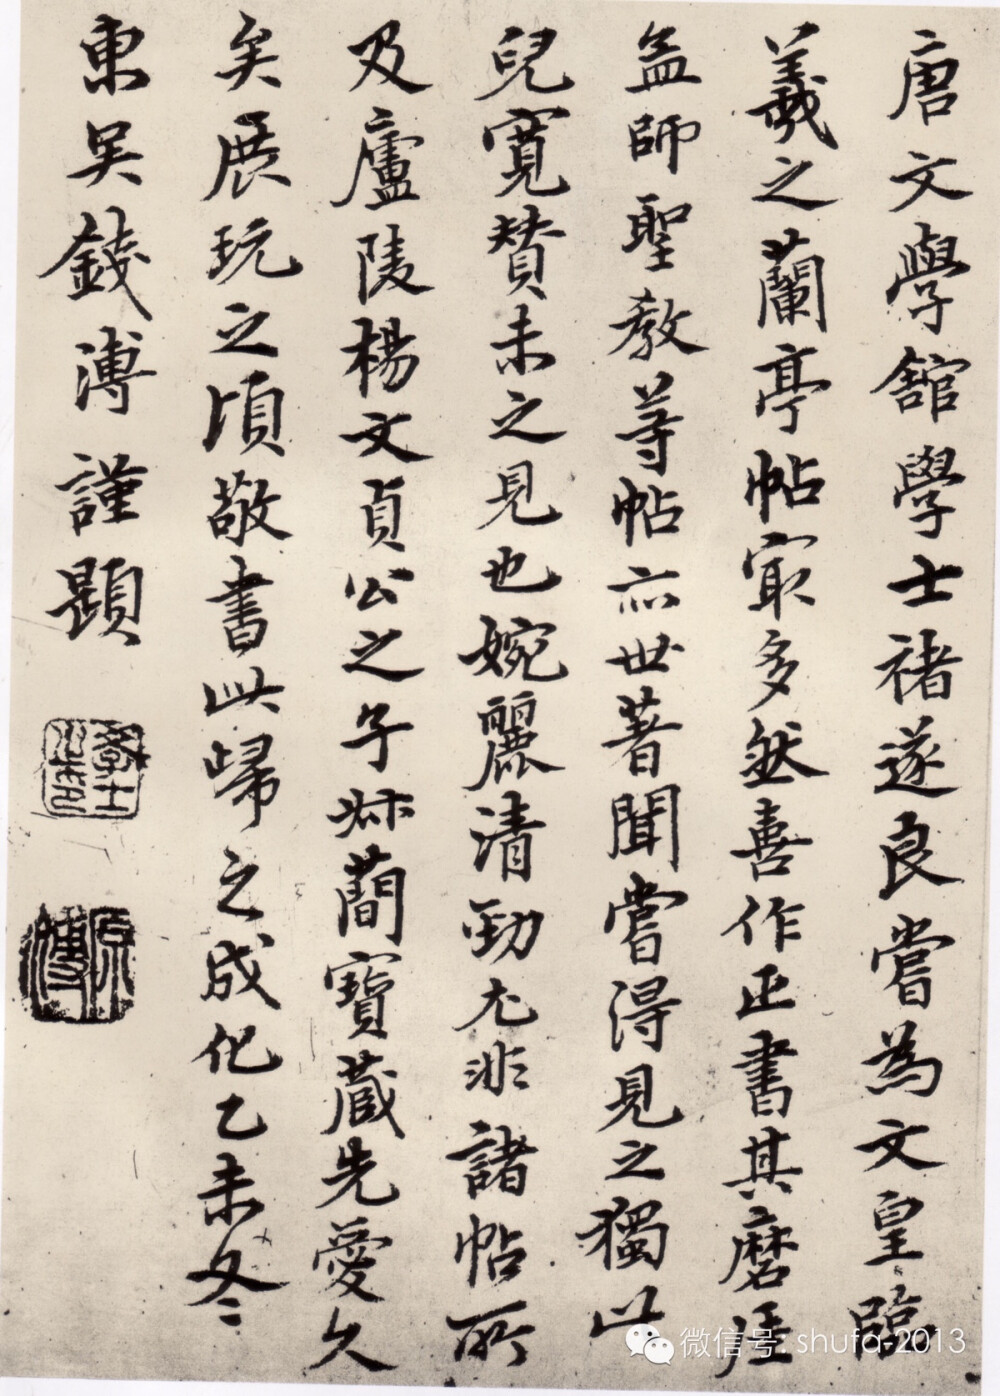 唐文學舘學士褚遂良嘗為文皇臨
羲之蘭亭帖冣多然喜作正書其磨崖
孟師聖教等帖亦世著聞嘗得見之獨此
兒寬贊未之見也婉麗清勁尤非諸帖所
及廬陵楊文貞公之子叔簡寶蔵先愛久
矣展玩之頃敬書此歸之成化乙未冬
東吳錢溥謹題
原溥
微信号: shufa-2013